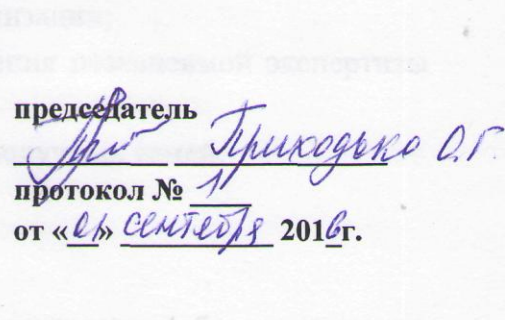 председатель
Приходько О.Г.
протокол № 1
от «01» сентября 2016г.